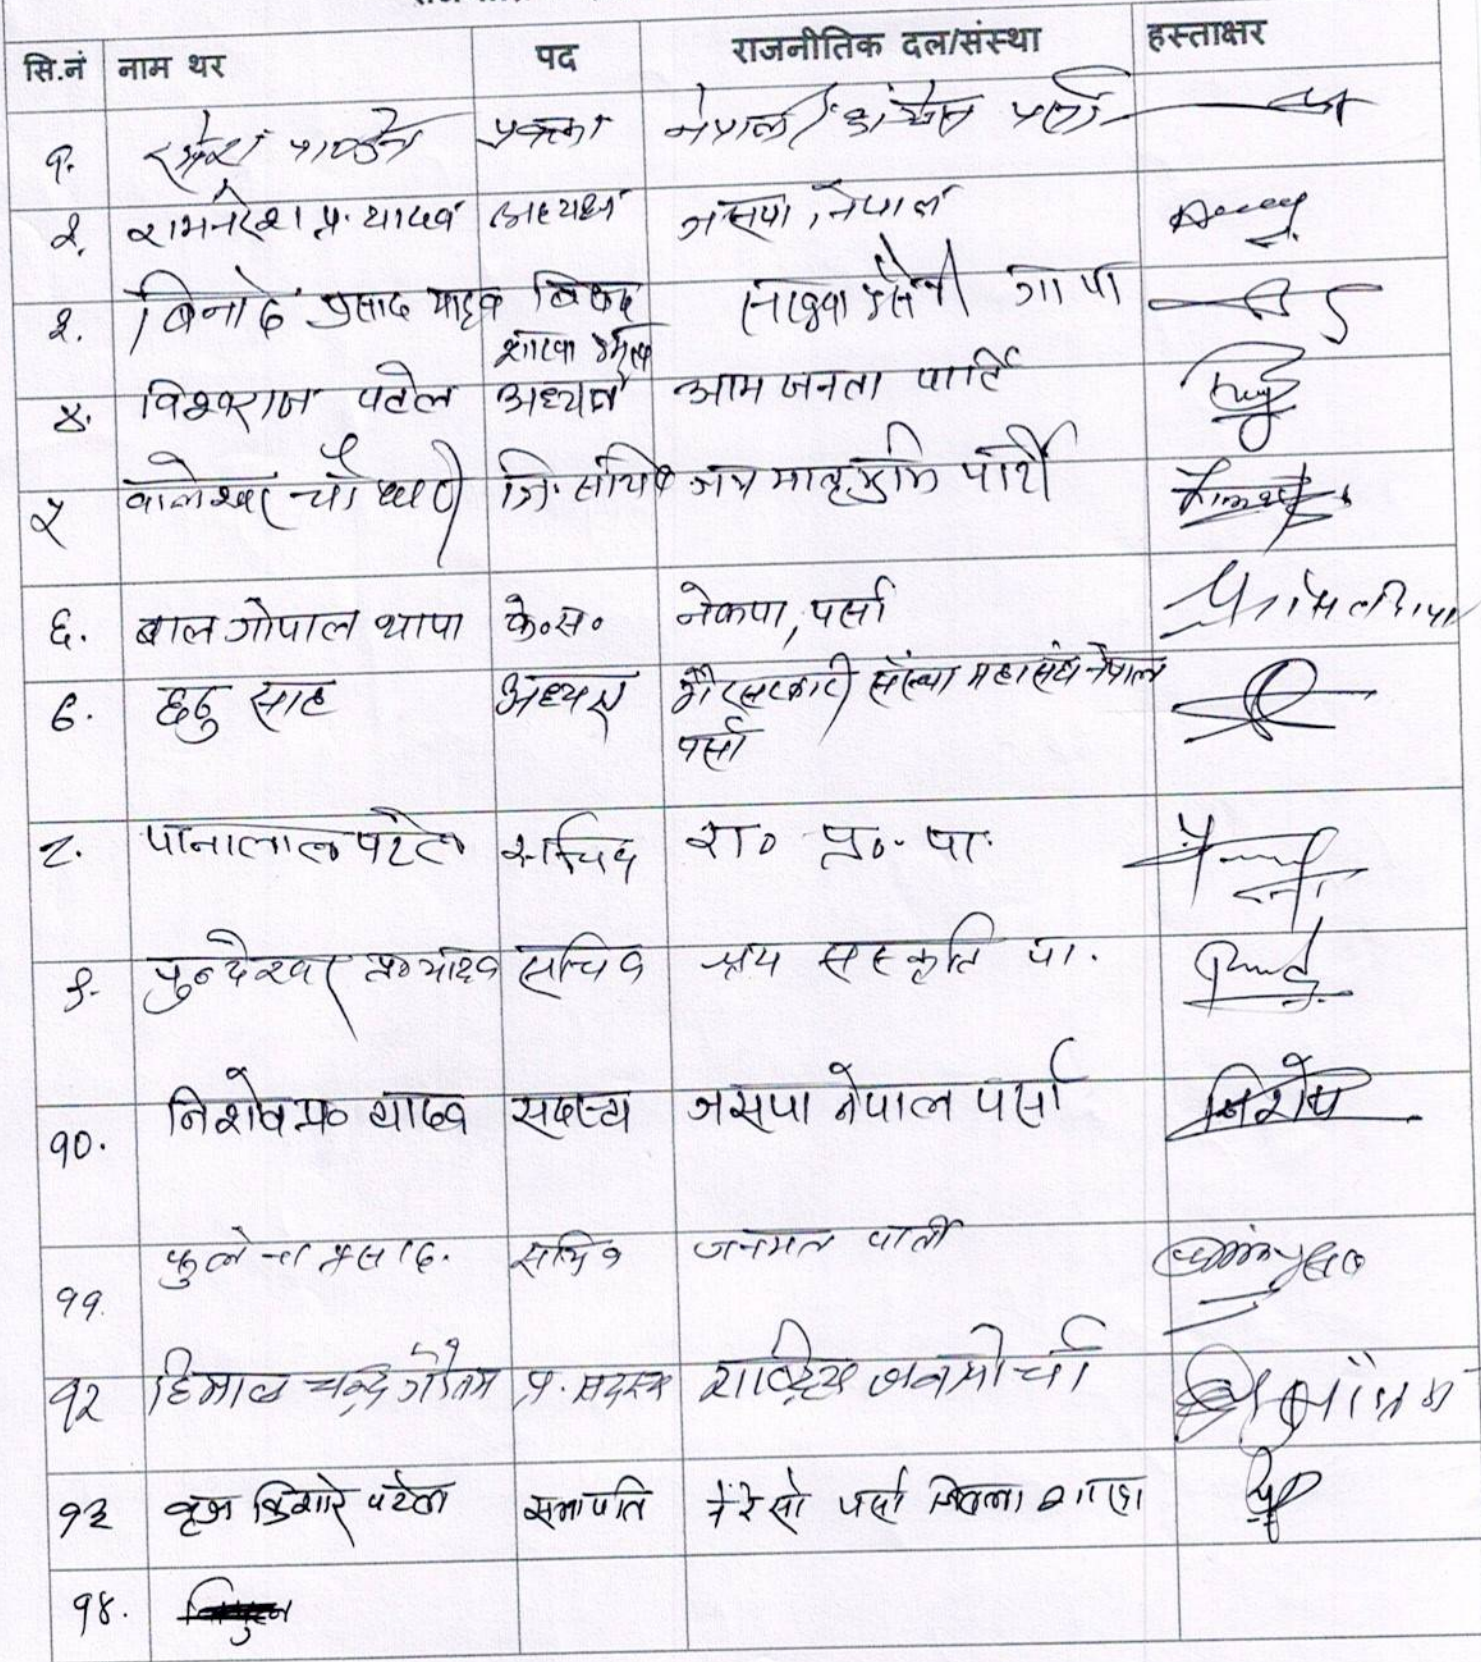 सि.नं नाम थर पद राजनीतिक दल/संस्था हस्ताक्षर
१. पाण्डेय प्रवक्ता नेपाली काँग्रेस पर्सा
२. रामनरेश प्र. यादव अध्यक्ष जसपा, नेपाल
३. बिनोद प्रसाद यादव सखुवा प्रसौनी गा पा
४. विश्वराज पटेल अध्यक्ष आम जनता पार्टि
५ वालेश्वर चौधरी जि. सचिव जय मातृभुमि पार्टी
६. बाल गोपाल थापा के०स० नेकपा, पर्सा
७. छठु साह अध्यक्ष गैरसरकारी संस्था महासंघ नेपाल
पर्सा
८. पानालाल पटेल सचिव रा० प्र०. पा.
९. प्र० यादव सचिव संस्कृति पा.
१०. निशेष प्र० यादव सदस्य जसपा नेपाल पर्सा निशेष
११. फुलेना प्रसाद. सचिव जनमत पार्टी
१२ हिमाल चन्द्र गौतम प्र. सदस्य राष्ट्रिय जनमोर्चा
१३ बृज किशोर पटेल सभापति ने रे सो पर्सा जिल्ला शाखा
१४.